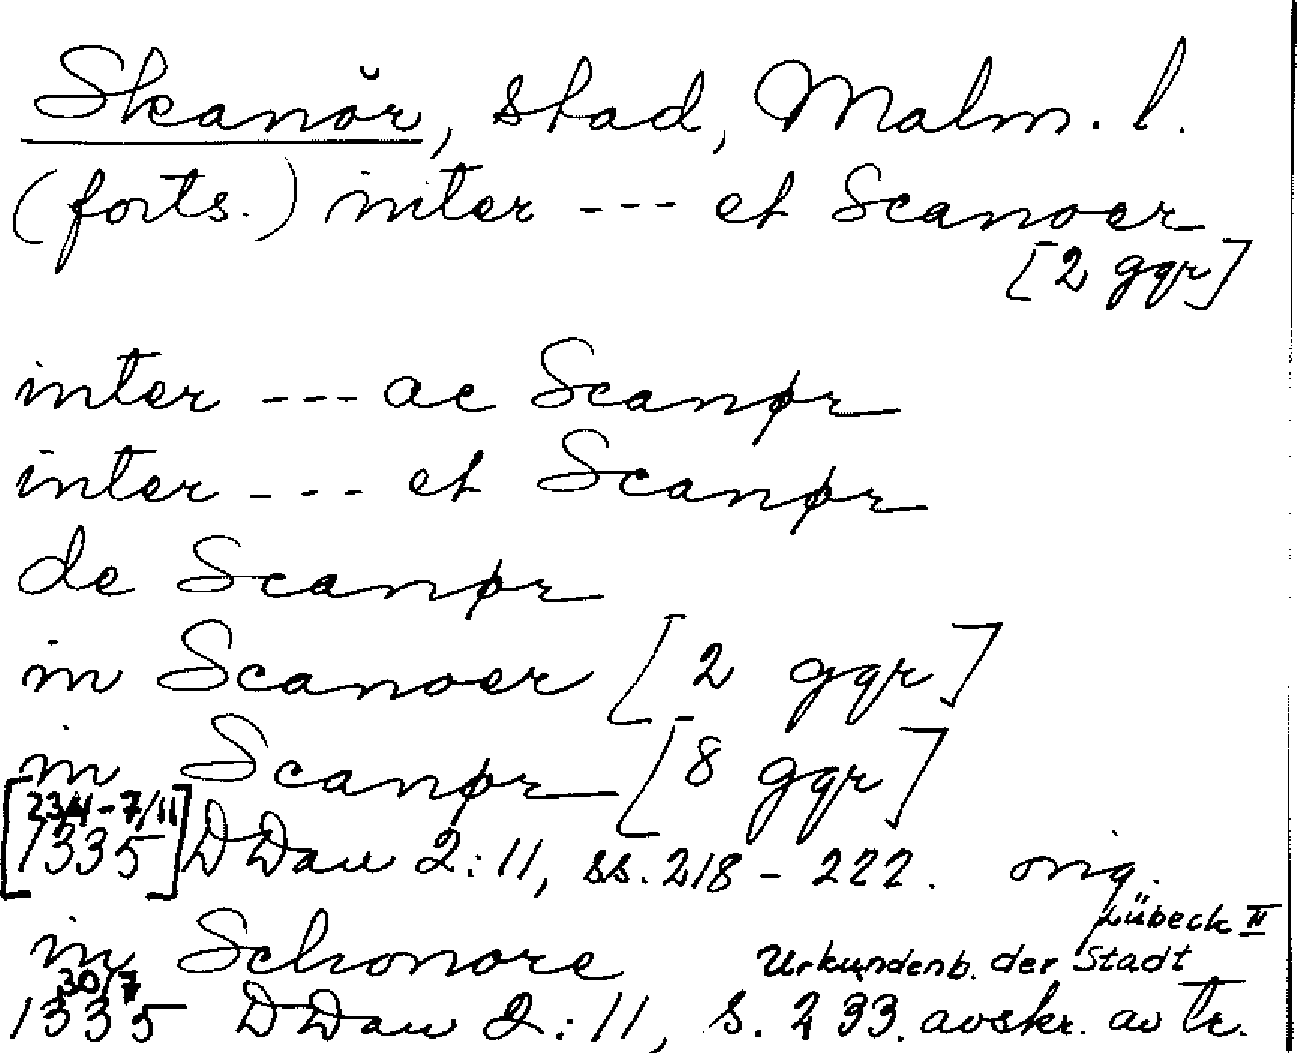 Skanör, stad, Malm. l.
(forts.) inter --- et Scanoer
[2 ggr]
inter --- ac Scanør
inter --- et Scanør
de Scanør
in Scanoer [2 ggr]
in Scanør [8 ggr]
[23/4-7/11
1335] DDan 2:11, ss. 218-222. orig.
in Schonore
Lübeck II
Urkundenb. der Stadt
30/7
1335 DDan 2:11, s. 233. avskr. av tr.